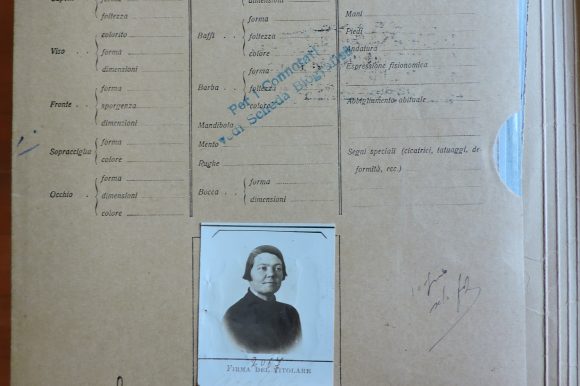 Capelli
forma
foltezza
colorito
Viso
forma
dimensioni
Fronte
forma
sporgenza
dimensioni
Sopracciglia
forma
colore
Occhio
forma
dimensioni
colore
dimensioni
Baffi
forma
foltezza
colore
Barba
forma
foltezza
colore
Mandibola
Mento
Rughe
Bocca
forma
dimensioni
Mani
Piedi
Andatura
Espressione fisionomica
Abbigliamento abituale
Segni speciali (cicatrici, tatuaggi, de-
formità, ecc.)
Per i Connotati
Vedi Scheda Biografica
FIRMA DEL TITOLARE